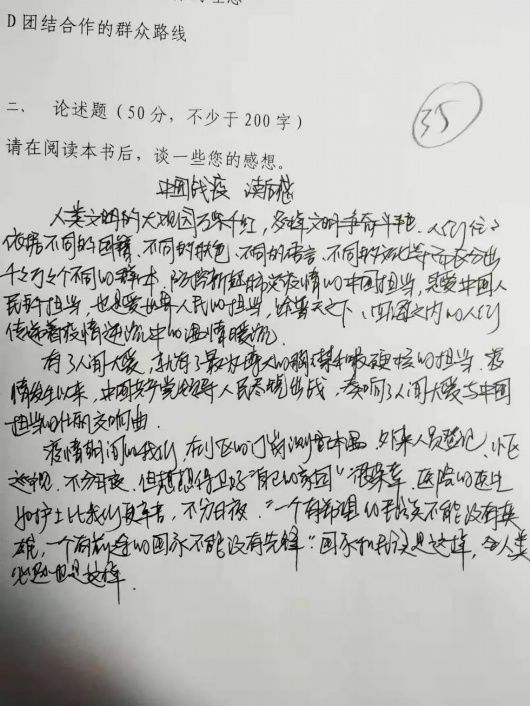 D 团结合作的群众路线
二、 论述题（50 分，不少于 200 字）
35
请在阅读本书后，谈一些您的感想。
中国战疫 读后感
人类文明的大观园万紫千红，多样文明争奇斗艳，人们往
依据不同的国籍、不同的肤色、不同的语言、不同的文化等
千千万万个不同的群体，防控新冠肺炎疫情的中国担当，是爱中国人
民的担当，也是爱世界人民的担当，给普天下、四海之内的人们
传递着疫情逆流中的温情暖流
有了人间大爱，就有了最为博大的胸襟和最硬核的担当。疫
情发生以来，中国共产党领导人民尽锐出战，奏响了人间大爱与中国
担当的壮丽交响曲.
疫情期间的我们，在小区的门岗测量体温，外来人员登记，小区
巡视，不分日夜，但想想得卫好"自己的家园"很荣幸，医院的医生
和护士比我们更辛苦，不分日夜，"一个有希望的民族不能没有英
雄，一个有前途的国家不能没有先锋"国家和抗疫是这样，全人类
也是这样.